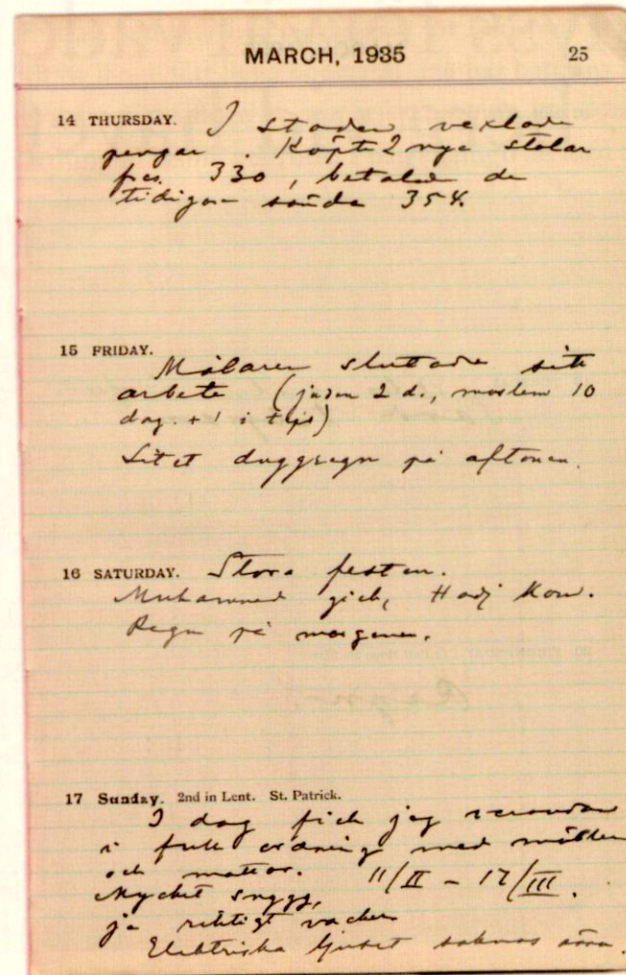 MARCH, 1935 25
14 THURSDAY. I staden vexlade
pengar. Köpte 2 nya stolar
frcs. 330, betalade de
tidigare sända 354.
15 FRIDAY.
Målaren slutade sitt
arbete (juden 2 d., moslem 10
dag. + 1 i tips)
Litet duggregn på aftonen.
16 SATURDAY. Stora festen.
Muhammed gick, Hadj kom.
Regn på morgonen.
17 Sunday. 2nd in Lent. St. Patrick.
I dag fick jag verandan
i full ordning med möbler
och mattor. 11/II – 17/III.
Mycket snygg,
ja riktigt vacker
Elektriska ljuset saknas ännu.